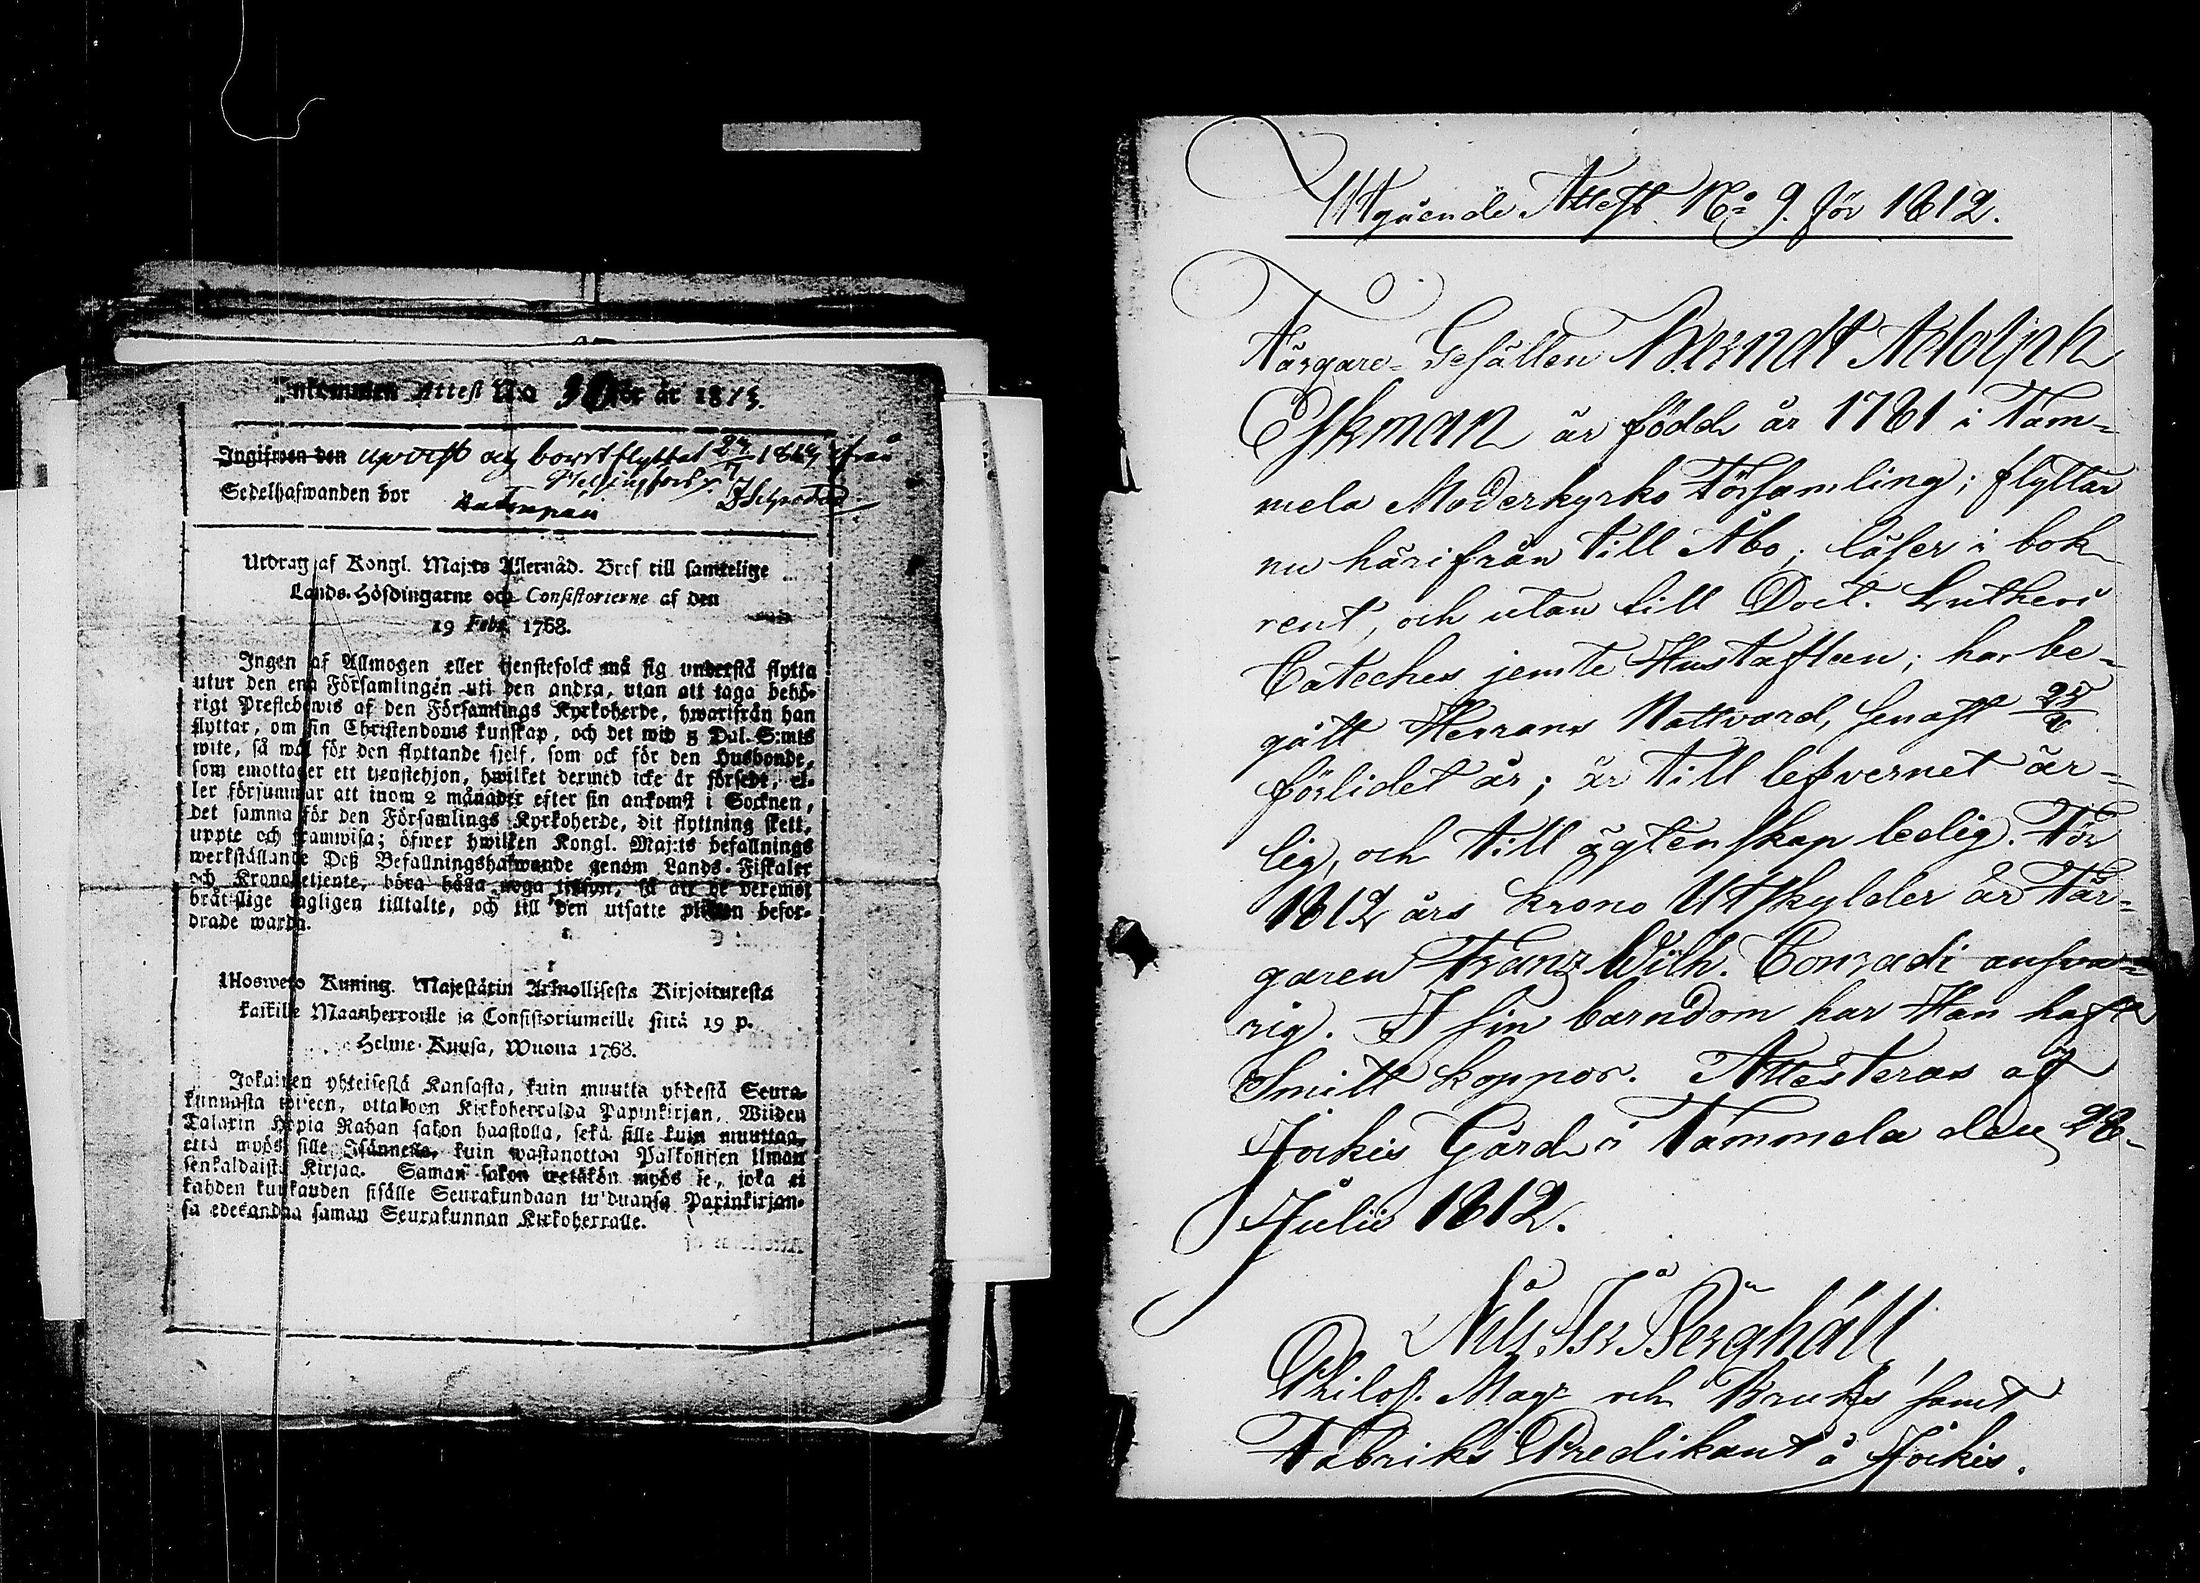 Inkommen Attest No 30 för år 1813.
Ingifwen den upvist og bortflyttat 27/7 1819 ifrå
Helsingfors.
Sedelhafwanden bor
Utdrag af Kongl. Maj:ts Allernåd. Bref till samtelige
Lands-Höfdingarne och Consistorierne af den
19 Febr. 1768.
Ingen af Allmogen eller tjenstefolck må sig understå flytta
utur den ena Församlingen uti den andra, utan att taga behö-
rigt Prestebewis af den Församlings Kyrkoherde, hwarifrån han
flyttar, om sin Christendoms kunskap, och det wid 5 Dal. S:mts
wite, så wäl för den flyttande sjelf, som ock för den Husbonde,
som emottager ett tjenstehjon, hwilket dermed icke är försedt, el-
ler försummar att inom 2 månader efter sin ankomst i Socknen,
det samma för den Församlings Kyrkoherde, dit flyttning skett,
uppte och framwisa; öfwer hwilken Kongl. Maj:ts befallnings
werkställande Deß Befallningshafwande genom Lands-Fiskaler
och Kronobetjente, böra hålla noga tilsyn, så att de deremot
bråtslige lagligen tilltalte, och till den utsatte plikten befor-
drade warda.
Ulosweto Kuning. Majestätin Armollisesta Kirjoituxesta
kaikille Maanherroille ja Consistoriumeille siitä 19 p.
Helme-Kuusa, Wuona 1768.
Jokainen yhteisestä Kansasta, kuin muutta yhdestä Seura-
kunnasta toiseen, ottakoon Kirkoherralda Papinkirjan, Wiiden
Talarin Hopia Rahan sakon haastolla, sekä sille kuin muuttaa,
että myös sille Isännelle, kuin wastanottaa Palkollisen ilman
senkaldaista Kirjaa. Saman sakon wetäkön myös se, joka ei
kahden kuukauden sisälle Seurakundaan tu'duansa Papinkirjan-
sa edeskandaa saman Seurakunnan Kirkoherralle.
Utgående Attest No 9. för 1812.
Färgare-Gesällen Berndt Adolph
Eskman är född år 1781 i Tam-
mela Moderkyrko Församling; flyttar
nu härifrån till Åbo; läser i bok
rent, och utan till Doct. Lutheri
Cateches jemte Hustaflan; har be-
gått Herrans Nattvard, senast 25/X
förlidet år; är till lefvernet är-
lig, och till ägtenskap ledig. För
1812 års krono Utskylder är Fär-
garen Franz Wilh. Conradi ansva-
rig. I sin barndom har Han haft
Smitt koppor. Attesteras af
Jockis Gård i Tammela den 28
Julii 1812.
Nils Joh Bergháll
Philos. Magr och Bruks samt
Fabriks Predikant å Jockis.